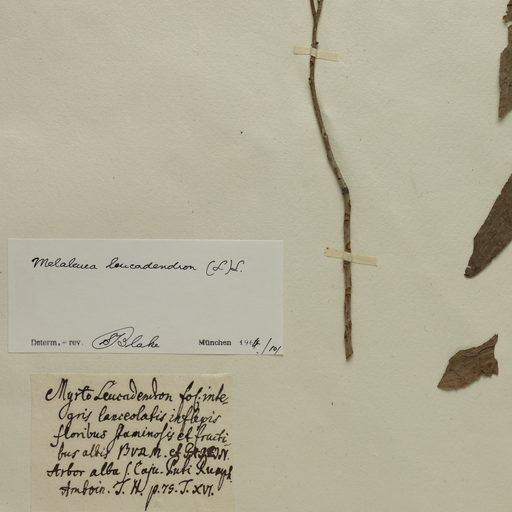 Melaleuca leucadendron (L) L.
Determ. - rev. STBlake München 1964 /10/
Myrto Leucadendron fol: inte
gris lanceolatis inflexis
floribus staminosis et fructi
bus albis
Arbor alba s. Caju Puti Rumph
Amboin. T. II. p. 75. T. XVI.